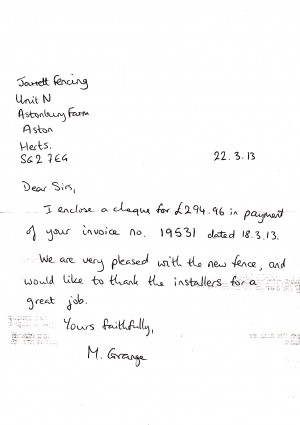 Jarrett Fencing
Unit N
Astonbury Farm
Aston
Herts.
SG2 7EG
22.3.13
Dear Sirs,
I enclose a cheque for £294.96 in payment
of your invoice no. 19531 dated 18.3.13.
We are very pleased with the new fence, and
would like to thank the installers for a
great job.
Yours faithfully,
M. Grange